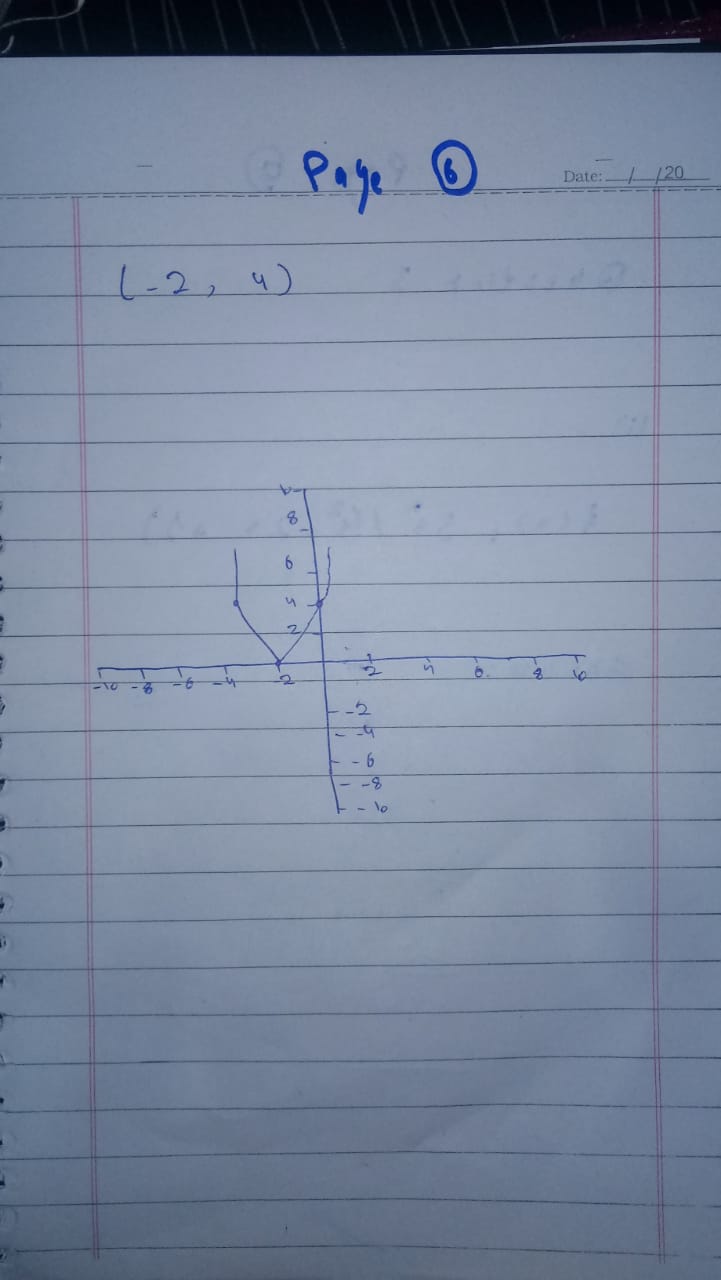 Page 6
Date: / /20
(-2, 4)
10
8
6
4
2
-10 -8 -6 -4 -2 2 4 6 8 10
-2
-4
-6
-8
-10